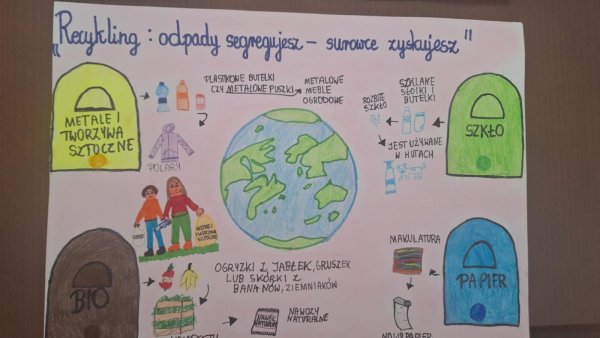 "Recykling: odpady segregujesz – surowce zyskujesz"
METALE I
TWORZYWA
SZTUCZNE
PLASTIKOWE BUTELKI
CZY METALOWE PUSZKI
METALOWE
MEBLE
OGRODOWE
POLARY
ROZBITE
SZKŁO
SZKLANE
SŁOIKI I
BUTELKI
SZKŁO
JEST UŻYWANE
W HUTACH
METALE I
TWORZYWA
SZTUCZNE
BIO
OGRYZKI Z JABŁEK, GRUSZEK
LUB SKÓRKI Z
BANANÓW, ZIEMNIAKÓW
NAWOZY
NATURALNE
NAWÓZ
NATURALNY
MAKULATURA
PAPIER
NOWY PAPIER